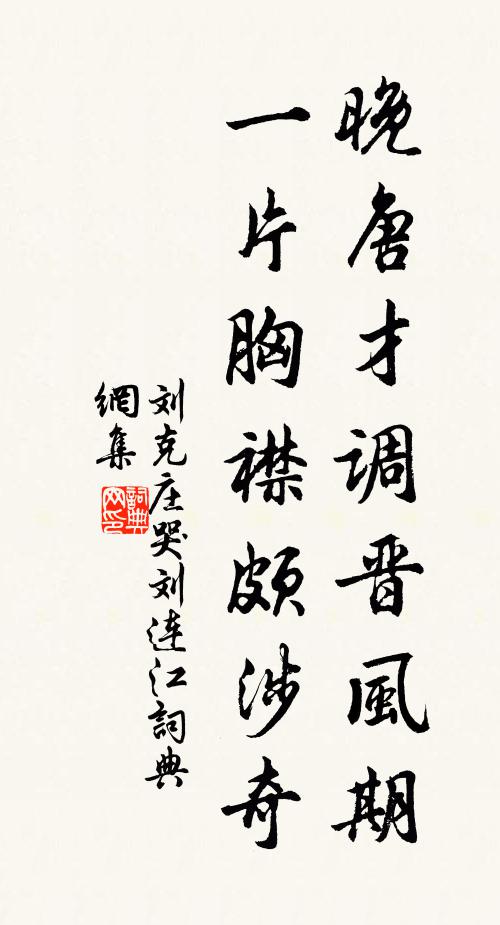 晚唐才调晋風期
一片胸襟頗涉奇
刘克庄哭刘连江詞典
網集
詞典
网印